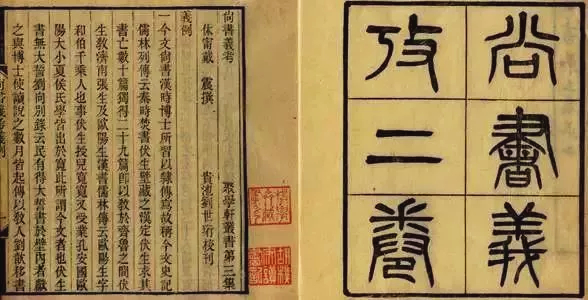 尚書義
攷二卷
尚書義考 聚學軒叢書第三集
休甯戴 震撰 貴池劉世珩校刊
義例
一今文尚書漢時博士所習以隸傳寫故稱今文史記
儒林列傳云秦時焚書伏生壁藏之漢定伏生求其
書亡數十篇獨得二十九篇卽以敎於齊魯之閒伏
生敎濟南張生及歐陽生漢書儒林傳云歐陽生字
和伯千乘人也事伏生授兒寬寬又受業孔安國歐
陽大小夏侯氏學皆出於寬此所謂今文者也伏生
書無大誓劉向別錄云民有得大誓書於壁內者獻
之與博士使讀說之數月皆起傳以敎人劉歆移書
尚書義考義例